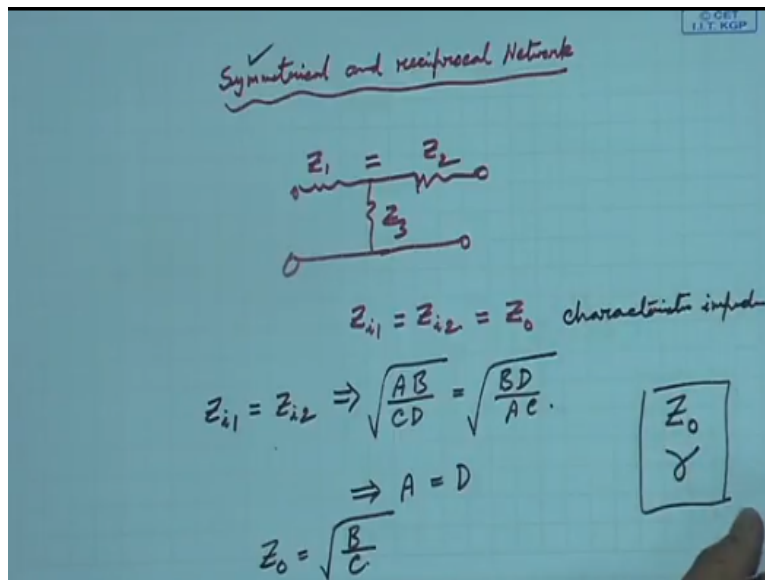 © CET
I.I.T. KGP
Symmetrical and reciprocal Network
Z₁ = Z₂
Z₃
Zᵢ₁ = Zᵢ₂ = Z₀ characteristic impeda
Zᵢ₁ = Zᵢ₂ ⇒ √(AB/CD) = √(BD/AC).
Z₀
γ
⇒ A = D
Z₀ = √(B/C)